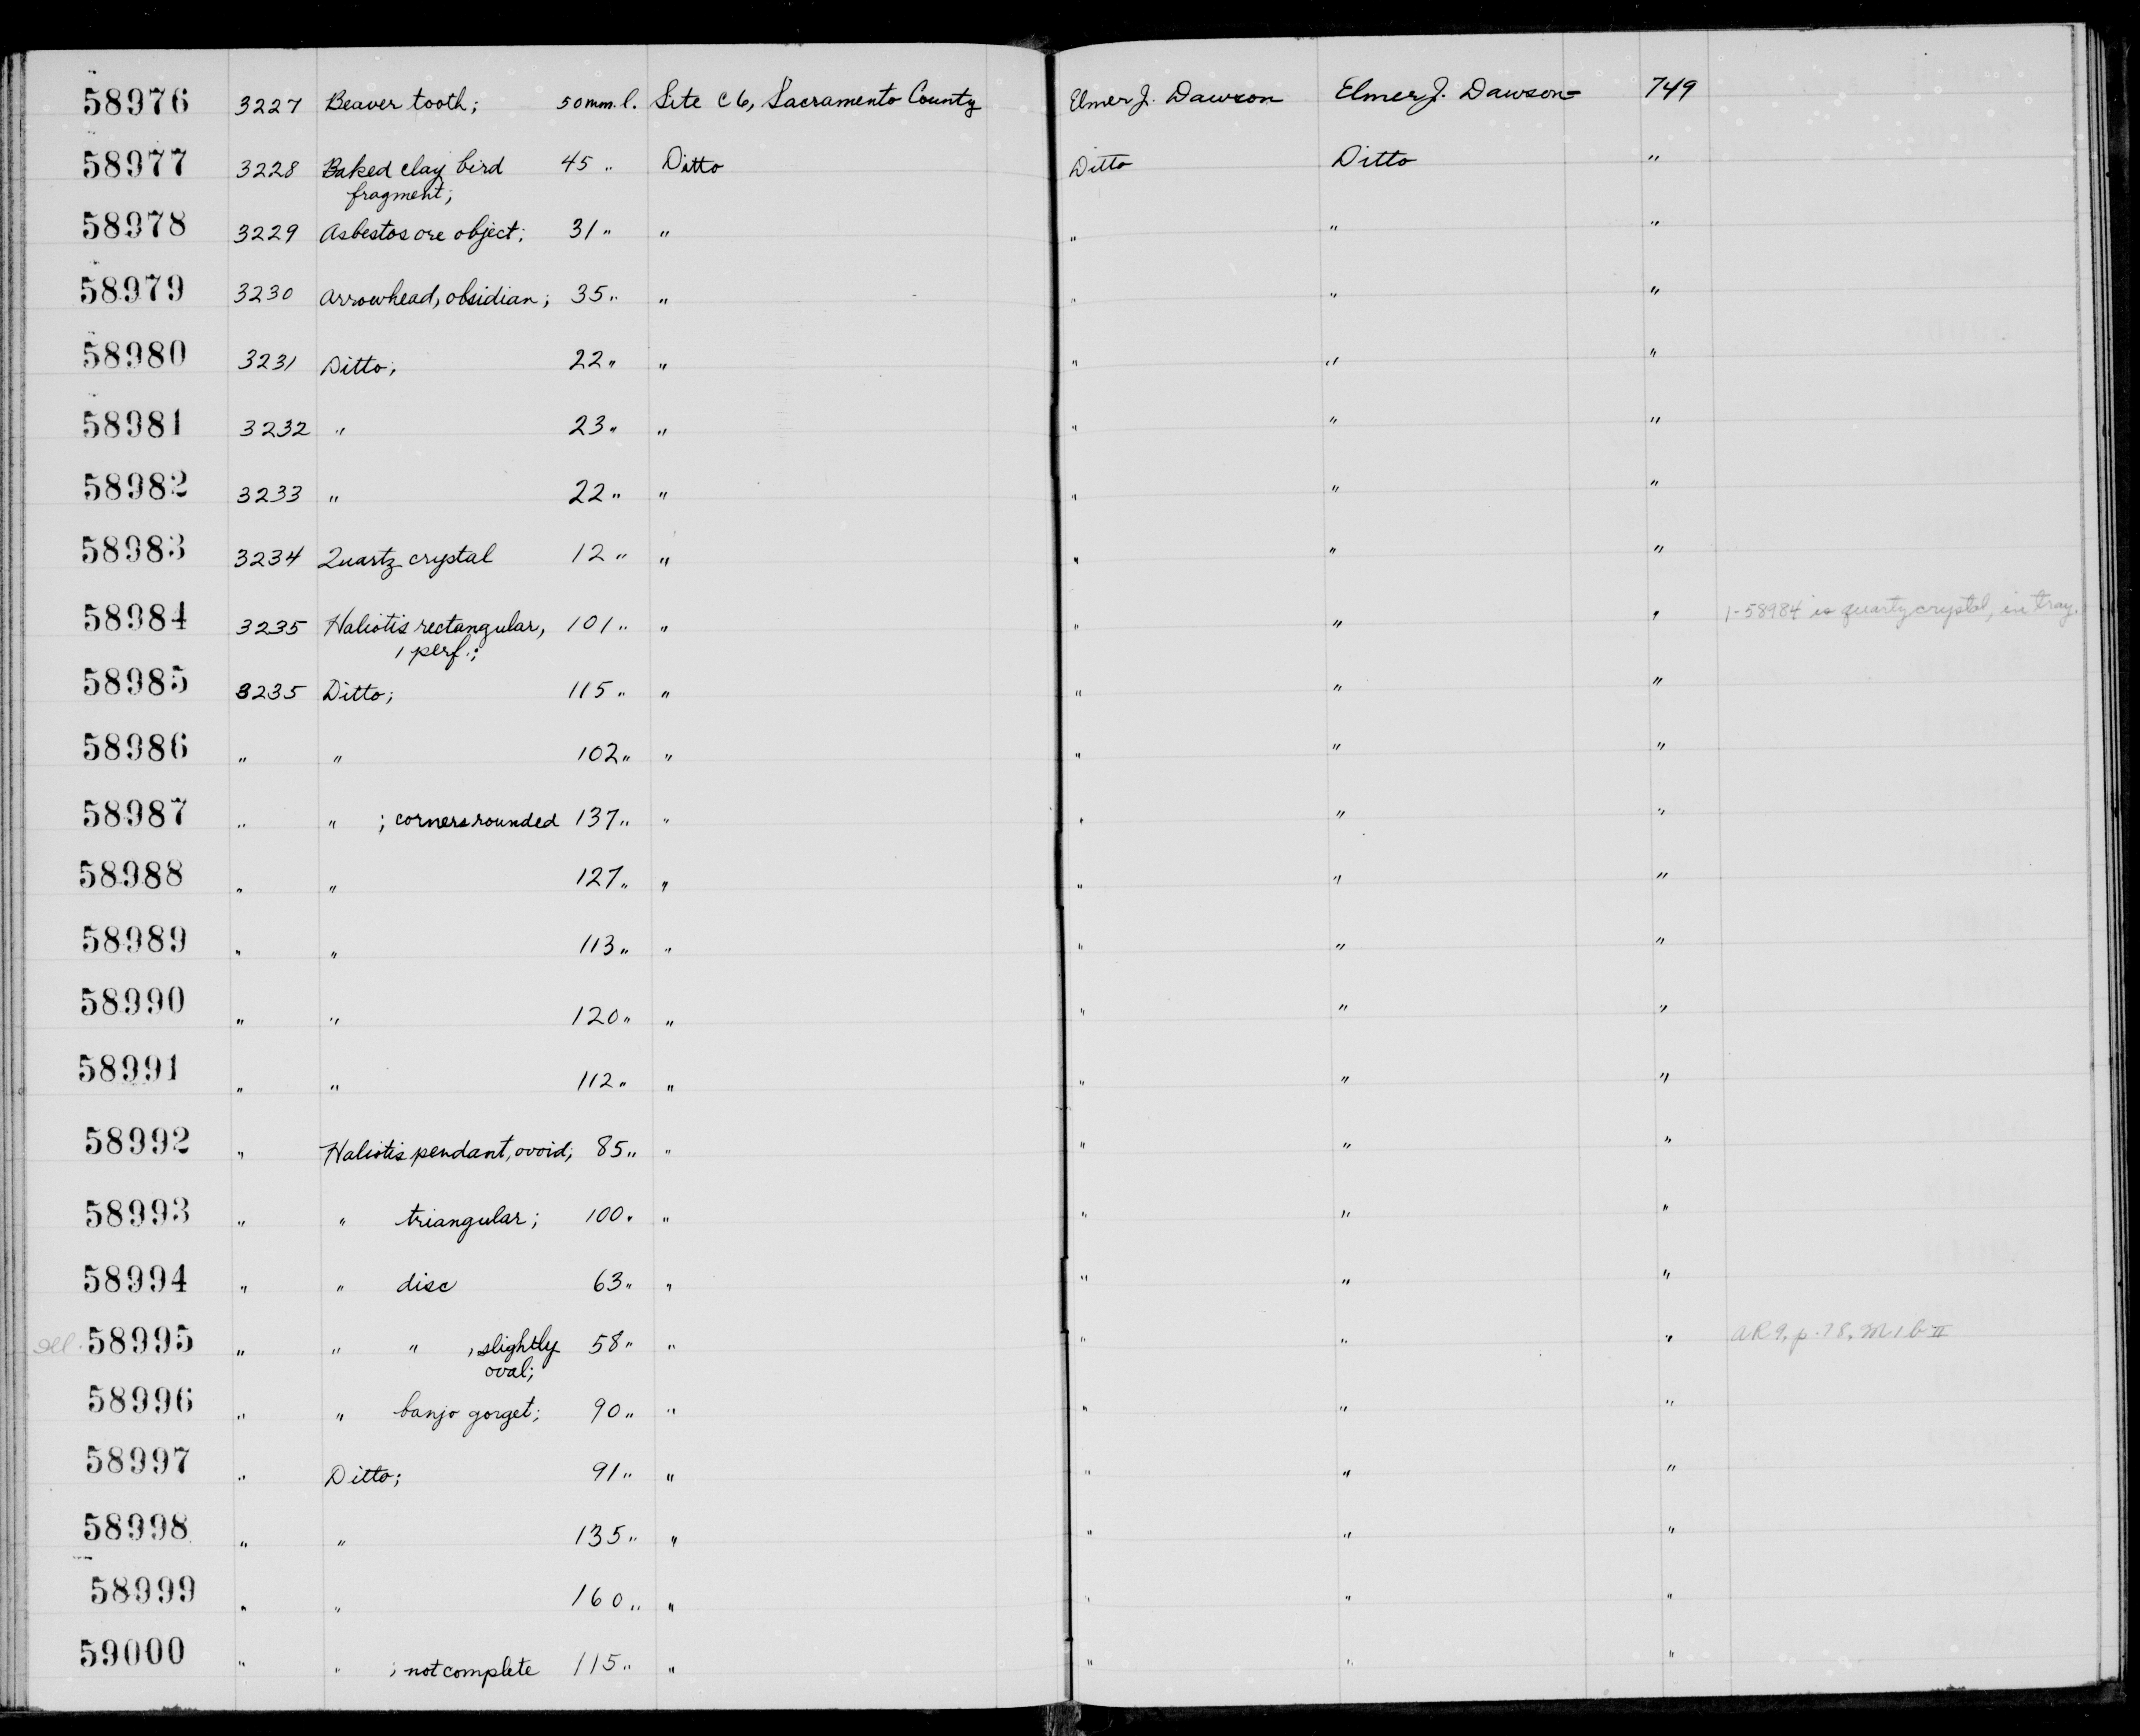 58976 3227 Beaver tooth; 50 mm. l. Site C6, Sacramento County Elmer J. Dawson Elmer J. Dawson 749
58977 3228 Baked clay bird 45 " Ditto Ditto Ditto "
fragment;
58978 3229 Asbestos ore object; 31 " " " " "
58979 3230 Arrowhead, obsidian; 35 " " " " "
58980 3231 Ditto; 22 " " " " "
58981 3232 " 23 " " " " "
58982 3233 " 22 " " " " "
58983 3234 Quartz crystal 12 " " " " "
58984 3235 Haliotis rectangular, 101 " " " " " 1-58984 is quartz crystal, in tray.
1 perf.;
58985 3235 Ditto; 115 " " " " "
58986 " " 102 " " " " "
58987 " " ; corners rounded 137 " " " " "
58988 " " 127 " " " " "
58989 " " 113 " " " " "
58990 " " 120 " " " " "
58991 " " 112 " " " " "
58992 " Haliotis pendant, ovoid; 85 " " " " "
58993 " " triangular; 100 " " " " "
58994 " " disc 63 " " " " "
Ill. 58995 " " " , slightly 58 " " " " " AR9, p. 78, M1bII
oval;
58996 " " banjo gorget; 90 " " " " "
58997 " Ditto; 91 " " " " "
58998 " " 135 " " " " "
58999 " " 160 " " " " "
59000 " " ; not complete 115 " " " " "